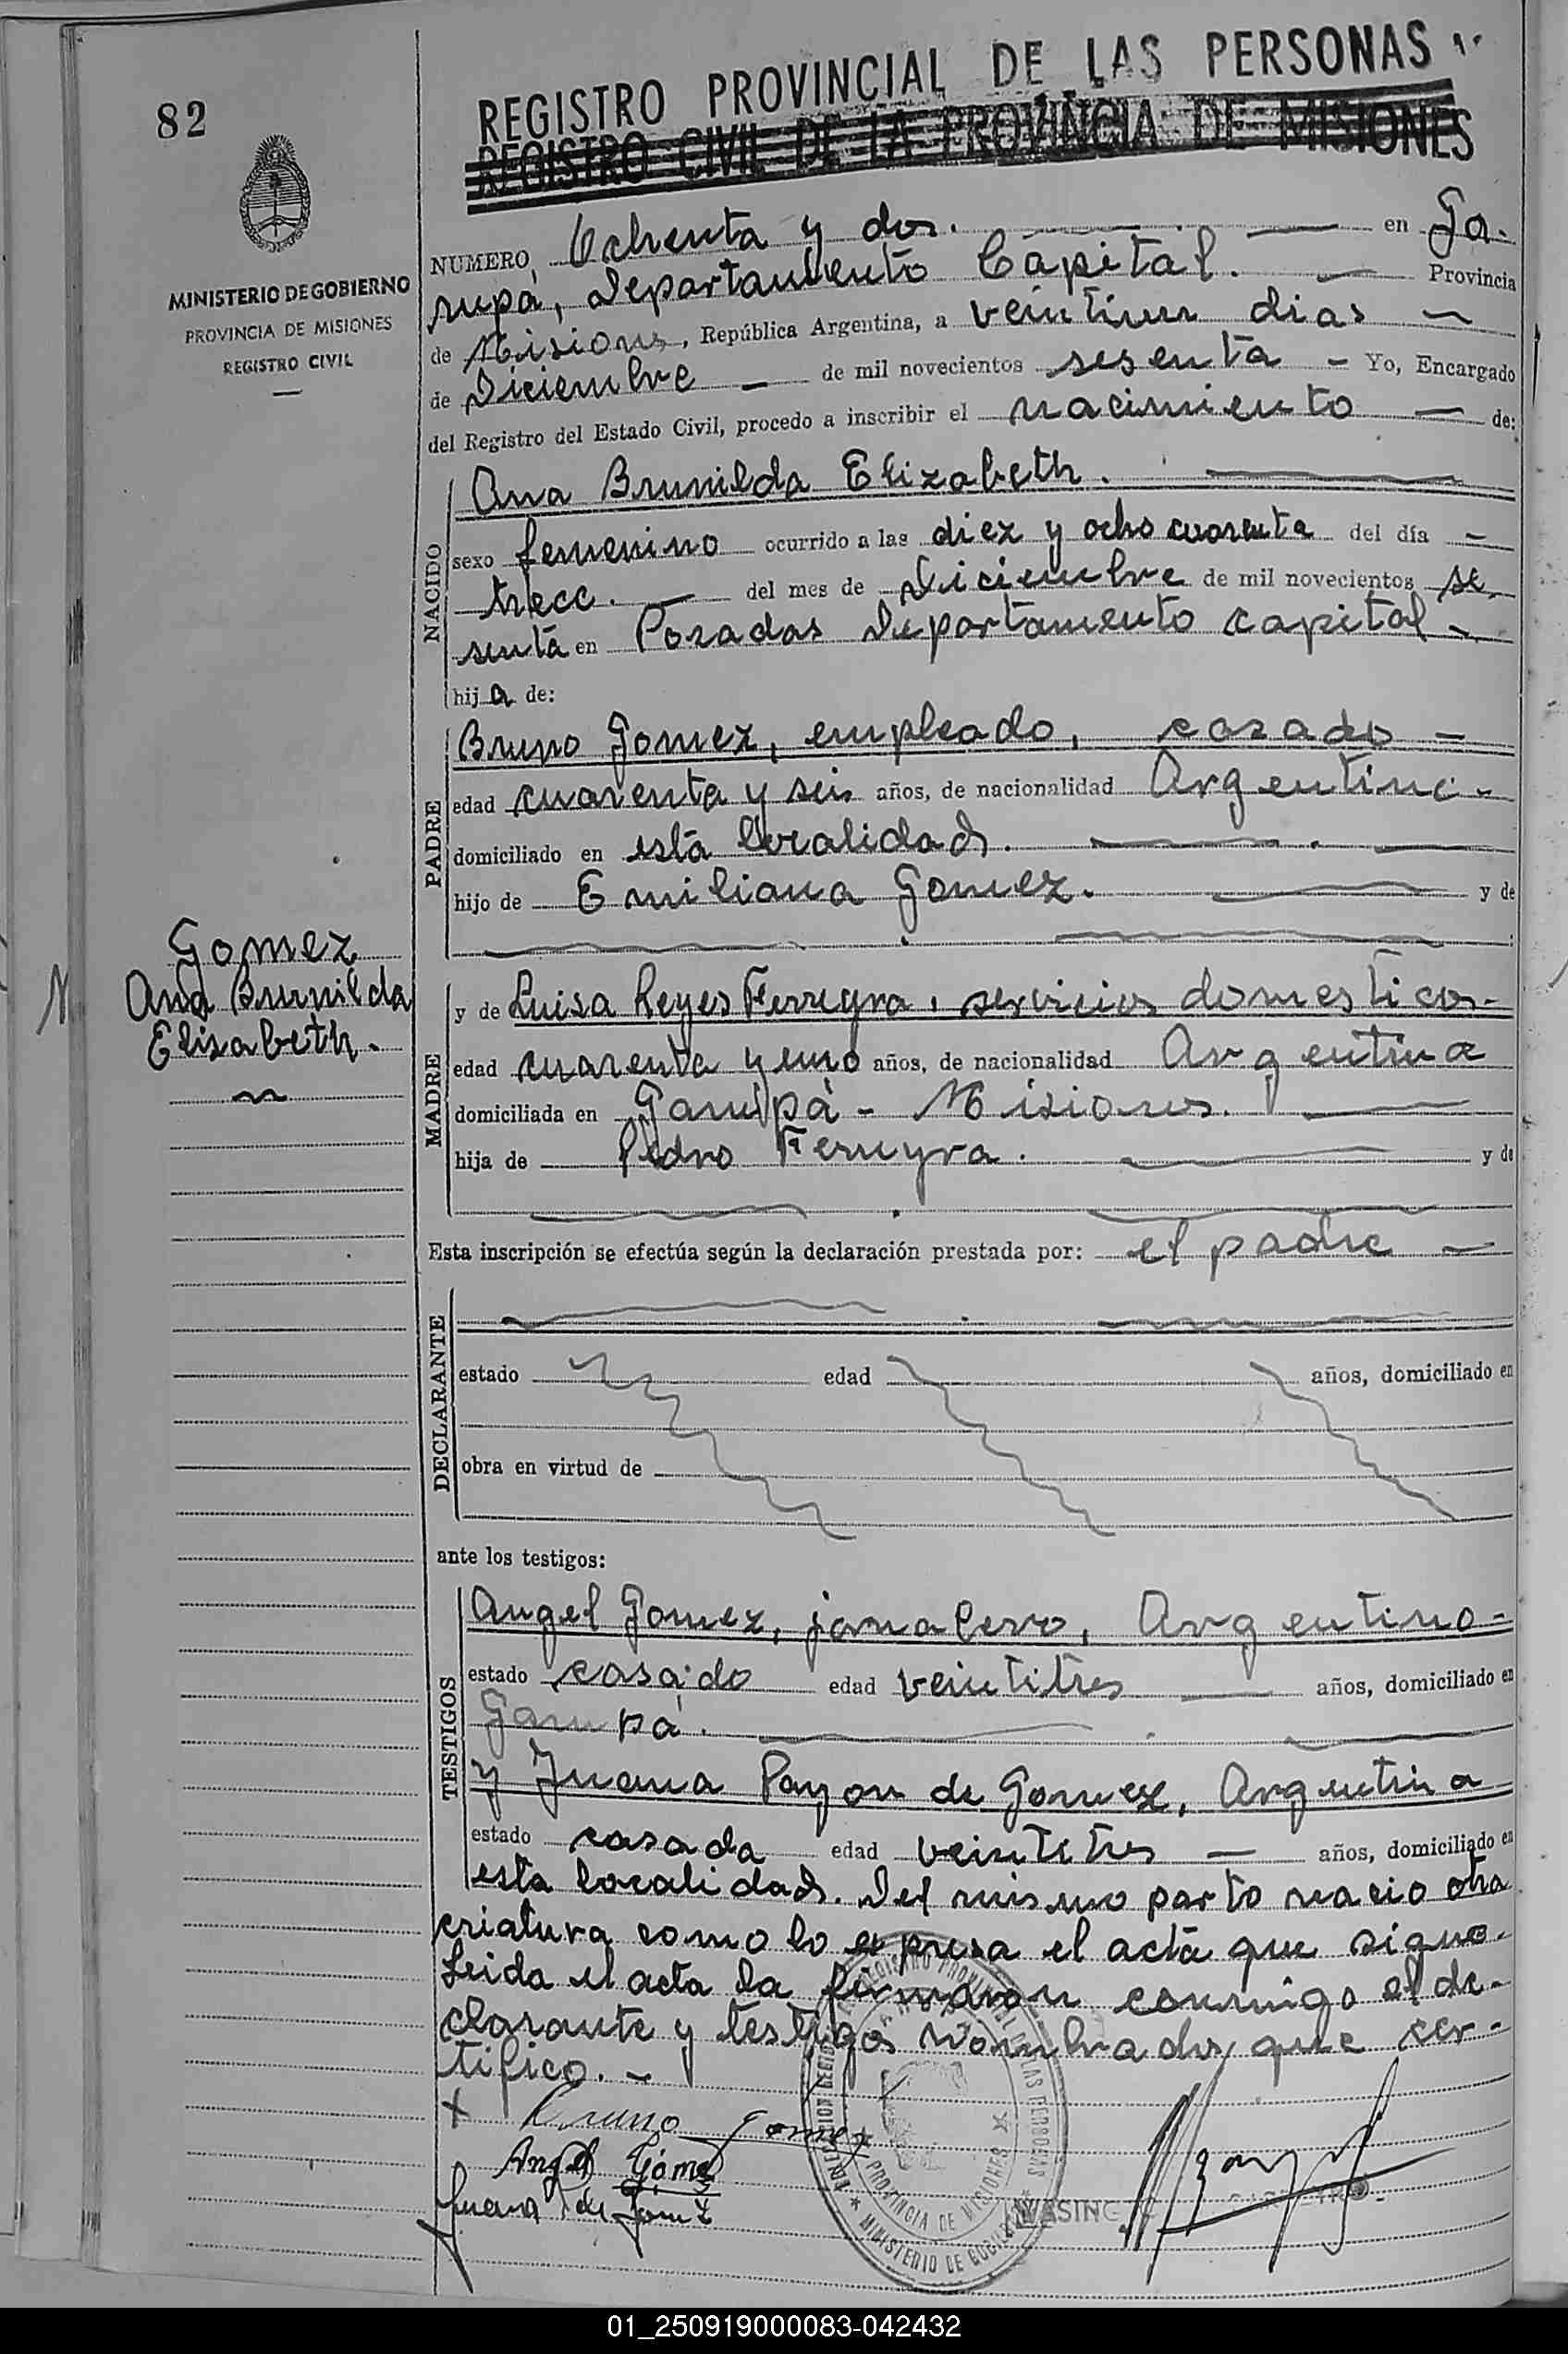 82
REGISTRO PROVINCIAL DE LAS PERSONAS
REGISTRO CIVIL DE LA PROVINCIA DE MISIONES
MINISTERIO DE GOBIERNO
PROVINCIA DE MISIONES
REGISTRO CIVIL
NUMERO, Ochenta y dos. en Ga-
rupá, Departamento Capital. Provincia
de Misiones, República Argentina, a veintiun dias
de Diciembre de mil novecientos sesenta - Yo, Encargado
del Registro del Estado Civil, procedo a inscribir el nacimiento de:
NACIDO
Ana Brunilda Elizabeth.
sexo femenino ocurrido a las diez y ocho cuarenta del día
trece. del mes de Diciembre de mil novecientos se-
senta en Posadas Departamento capital -
hija de:
PADRE
Bruno Gomez, empleado, casado -
edad cuarenta y seis años, de nacionalidad Argentina -
domiciliado en esta localidad.
hijo de Emiliana Gomez. y de
Gomez
Ana Brunilda
Elizabeth.
MADRE
y de Luisa Reyes Ferreyra, servicios domesticos-
edad cuarenta y uno años, de nacionalidad Argentina
domiciliada en Garupá - Misiones.
hija de Pedro Ferreyra. y de
Esta inscripción se efectúa según la declaración prestada por: el padre
DECLARANTE
estado edad años, domiciliado en
obra en virtud de
ante los testigos:
TESTIGOS
Angel Gomez, jornalero, Argentino-
estado casado edad veintitres años, domiciliado en
Garupá.
y Juana Payon de Gomez, Argentina
estado casada edad veintitres años, domiciliado en
esta localidad. Del mismo parto nacio otra
criatura como lo expresa el acta que sigue.
Leida el acta la firmaron conmigo el de-
clarante y testigos nombrados que cer-
tifico. -
Bruno Gomez
Angel Gómez
Juana P de Gomez
REGISTRO PROVINCIAL DE LAS PERSONAS
PROVINCIA DE MISIONES
MINISTERIO DE GOBIERNO
01_250919000083-042432